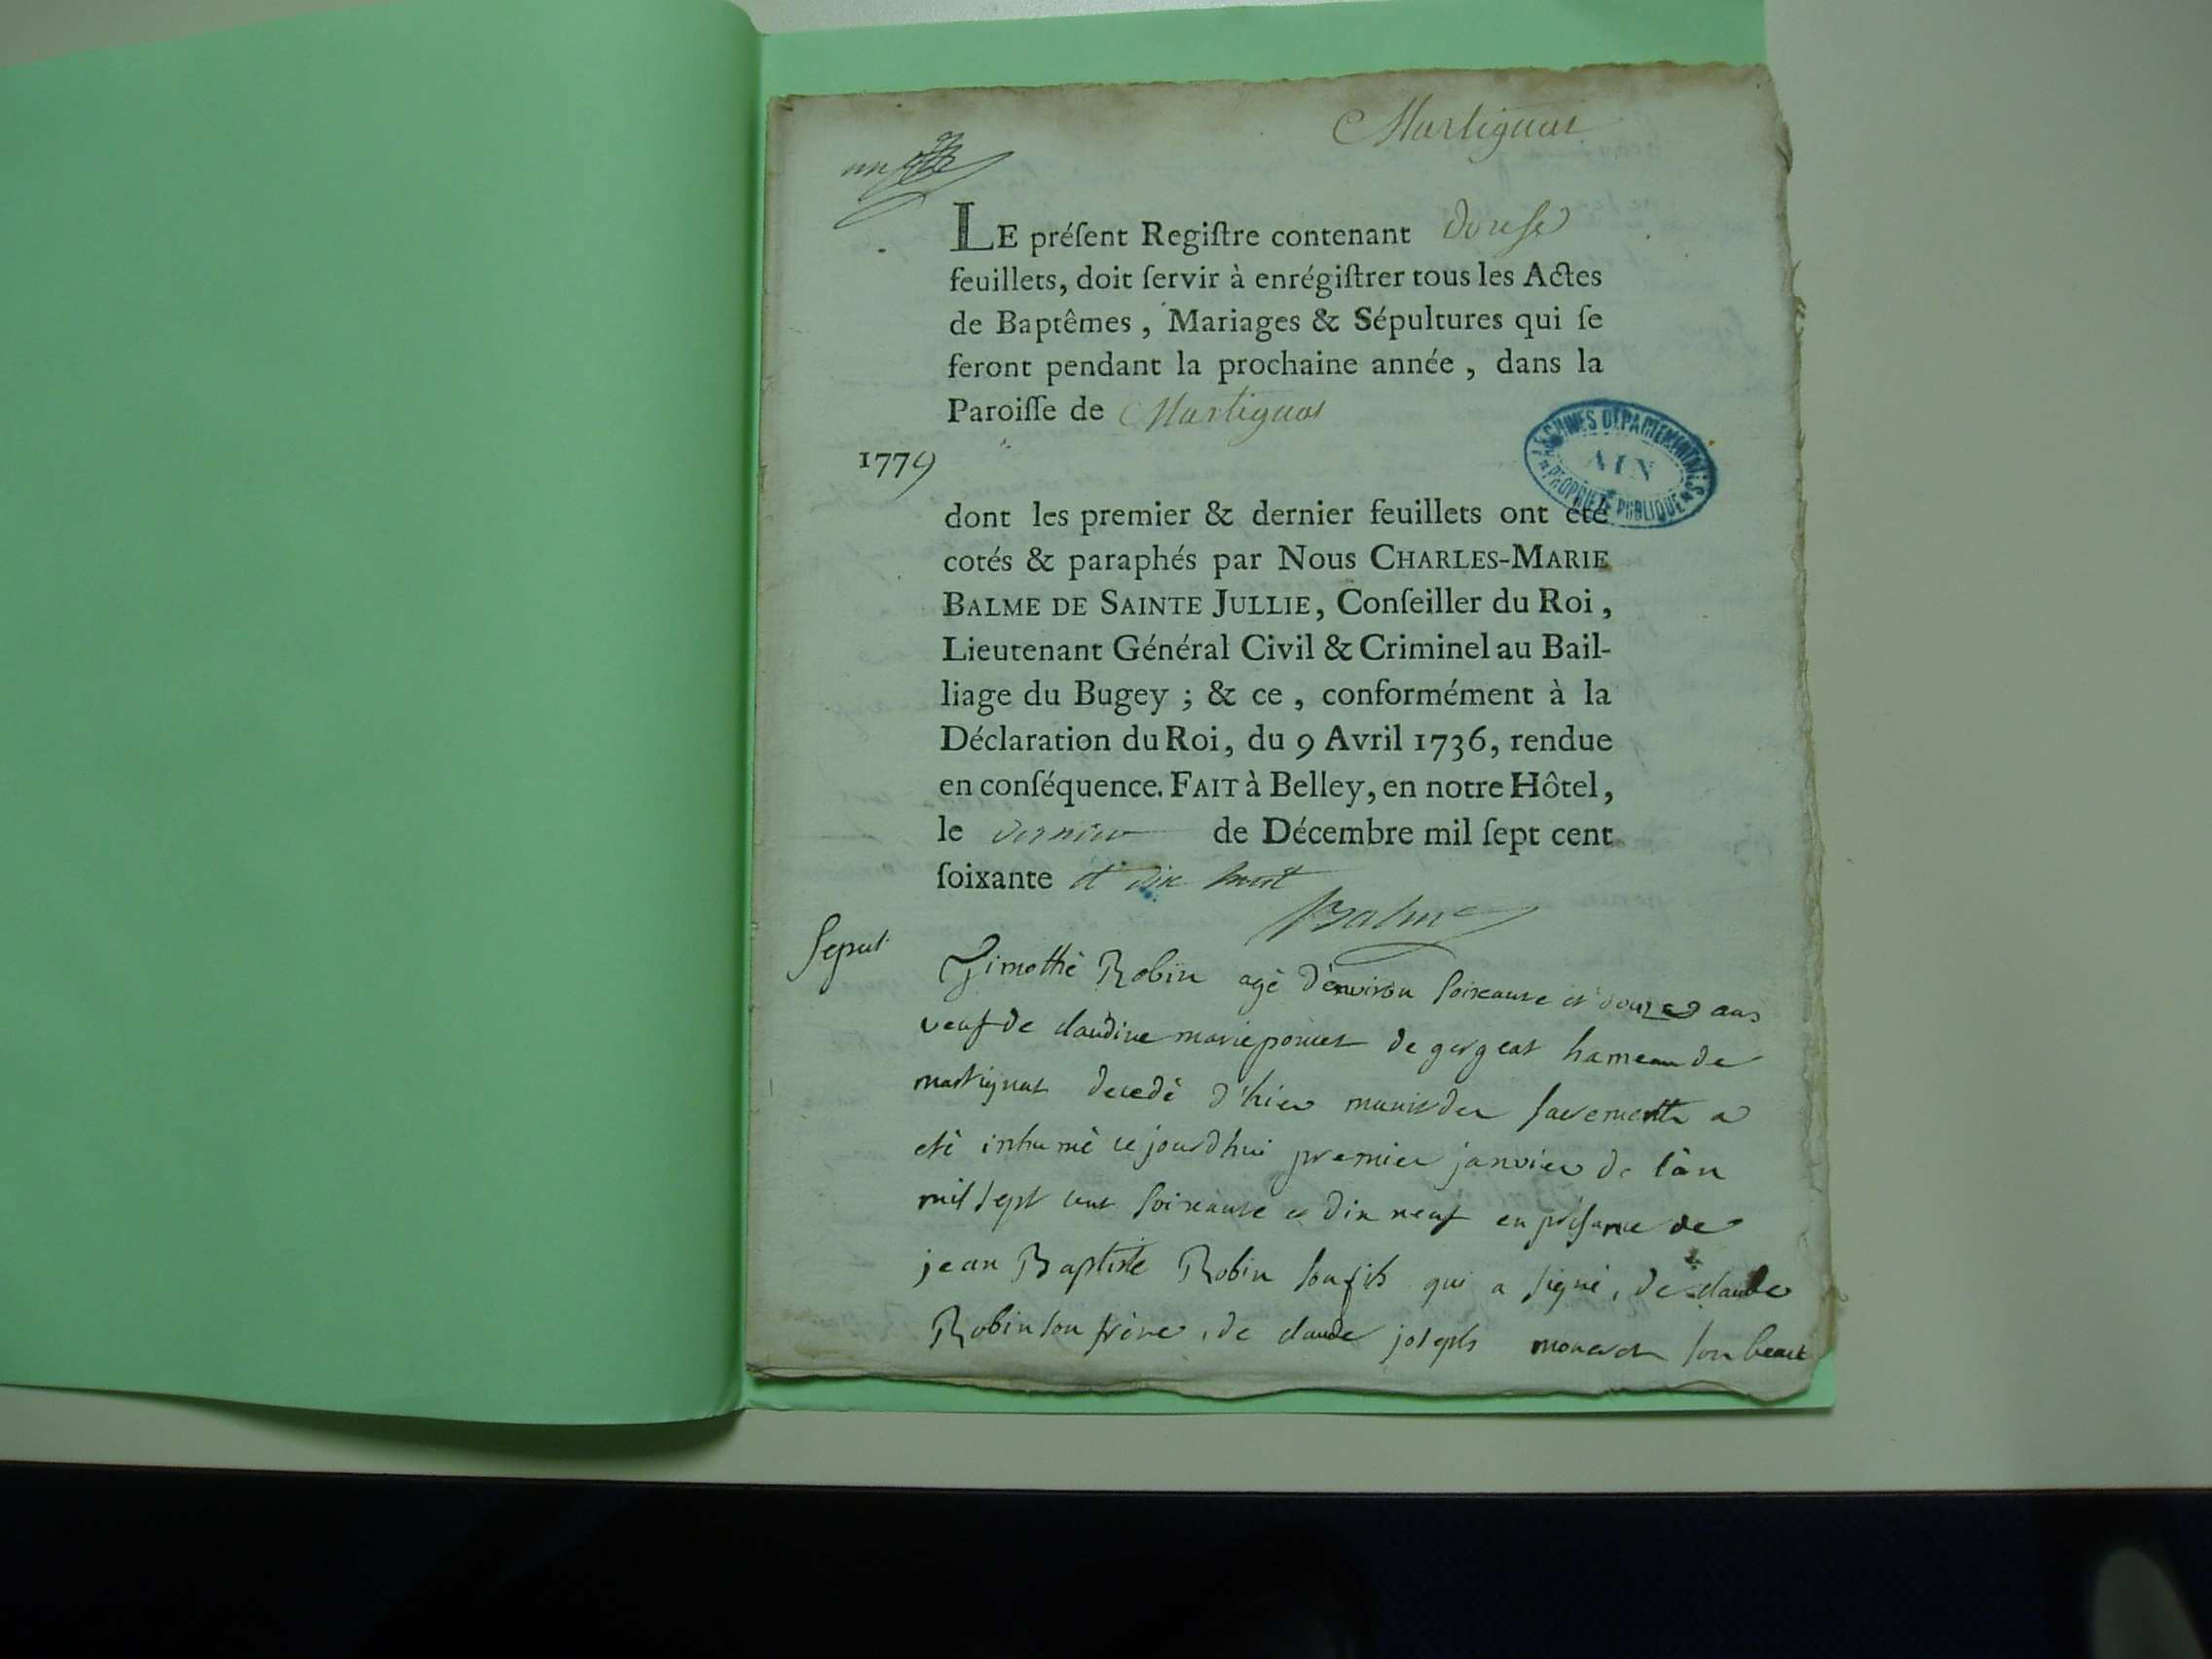 Martignat
un
LE préſent Regiſtre contenant douse
feuillets, doit ſervir à enrégiſtrer tous les Actes
de Baptêmes, Mariages & Sépultures qui ſe
feront pendant la prochaine année, dans la
Paroiſſe de Martignat
1779
ARCHIVES DEPARTEMENTALES
AIN
PROPRIETE PUBLIQUE
dont les premier & dernier feuillets ont été
cotés & paraphés par Nous CHARLES-MARIE
BALME DE SAINTE JULLIE, Conſeiller du Roi,
Lieutenant Général Civil & Criminel au Bail-
liage du Bugey; & ce, conformément à la
Déclaration du Roi, du 9 Avril 1736, rendue
en conſéquence. FAIT à Belley, en notre Hôtel,
le dernier de Décembre mil ſept cent
ſoixante et dix huit
Balme
Sepul.
Timothé Robin agé d'environ soixante et douze ans
veuf de claudine marie poncet de gergeat hameau de
martignat decedé d'hier munis des sacements a
eté inhumé cejourdhui premier janvier de l'an
mil sept cent soixante et dix neuf en présence de
jean Baptiste Robin son fils qui a signé, de claude
Robin son frère, de claude joseph son beau